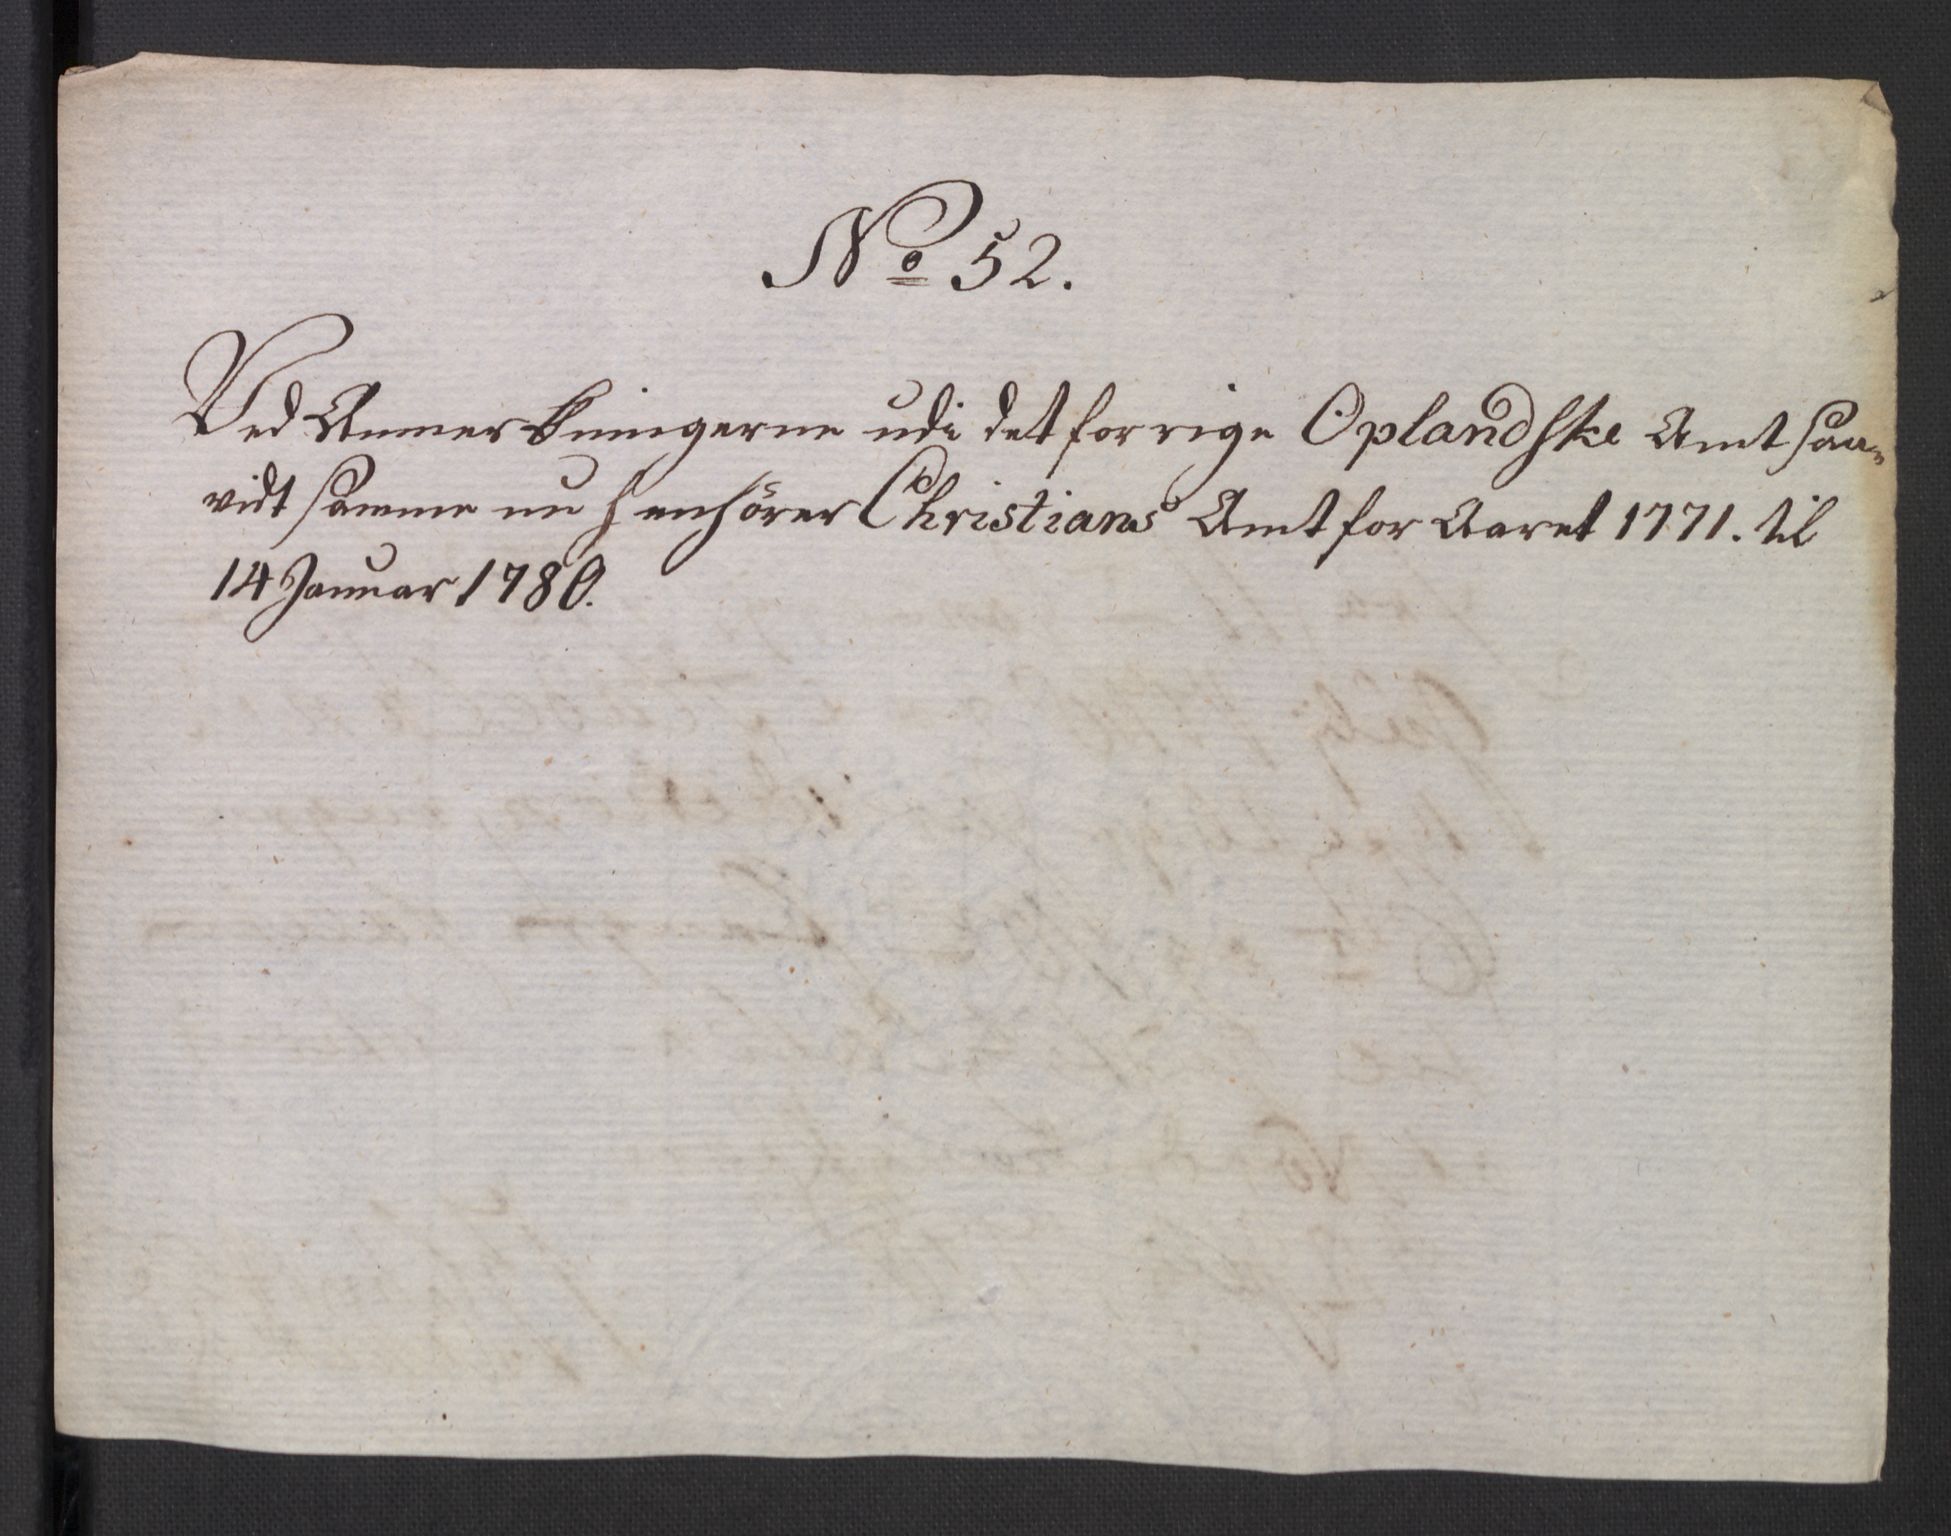 No 52.
Ved Anmerkningerne udi det forrige Oplandske Amt saa-
vidt samme nu henhörer Christians Amt for Aaret 1771. til
14 Januar 1780.